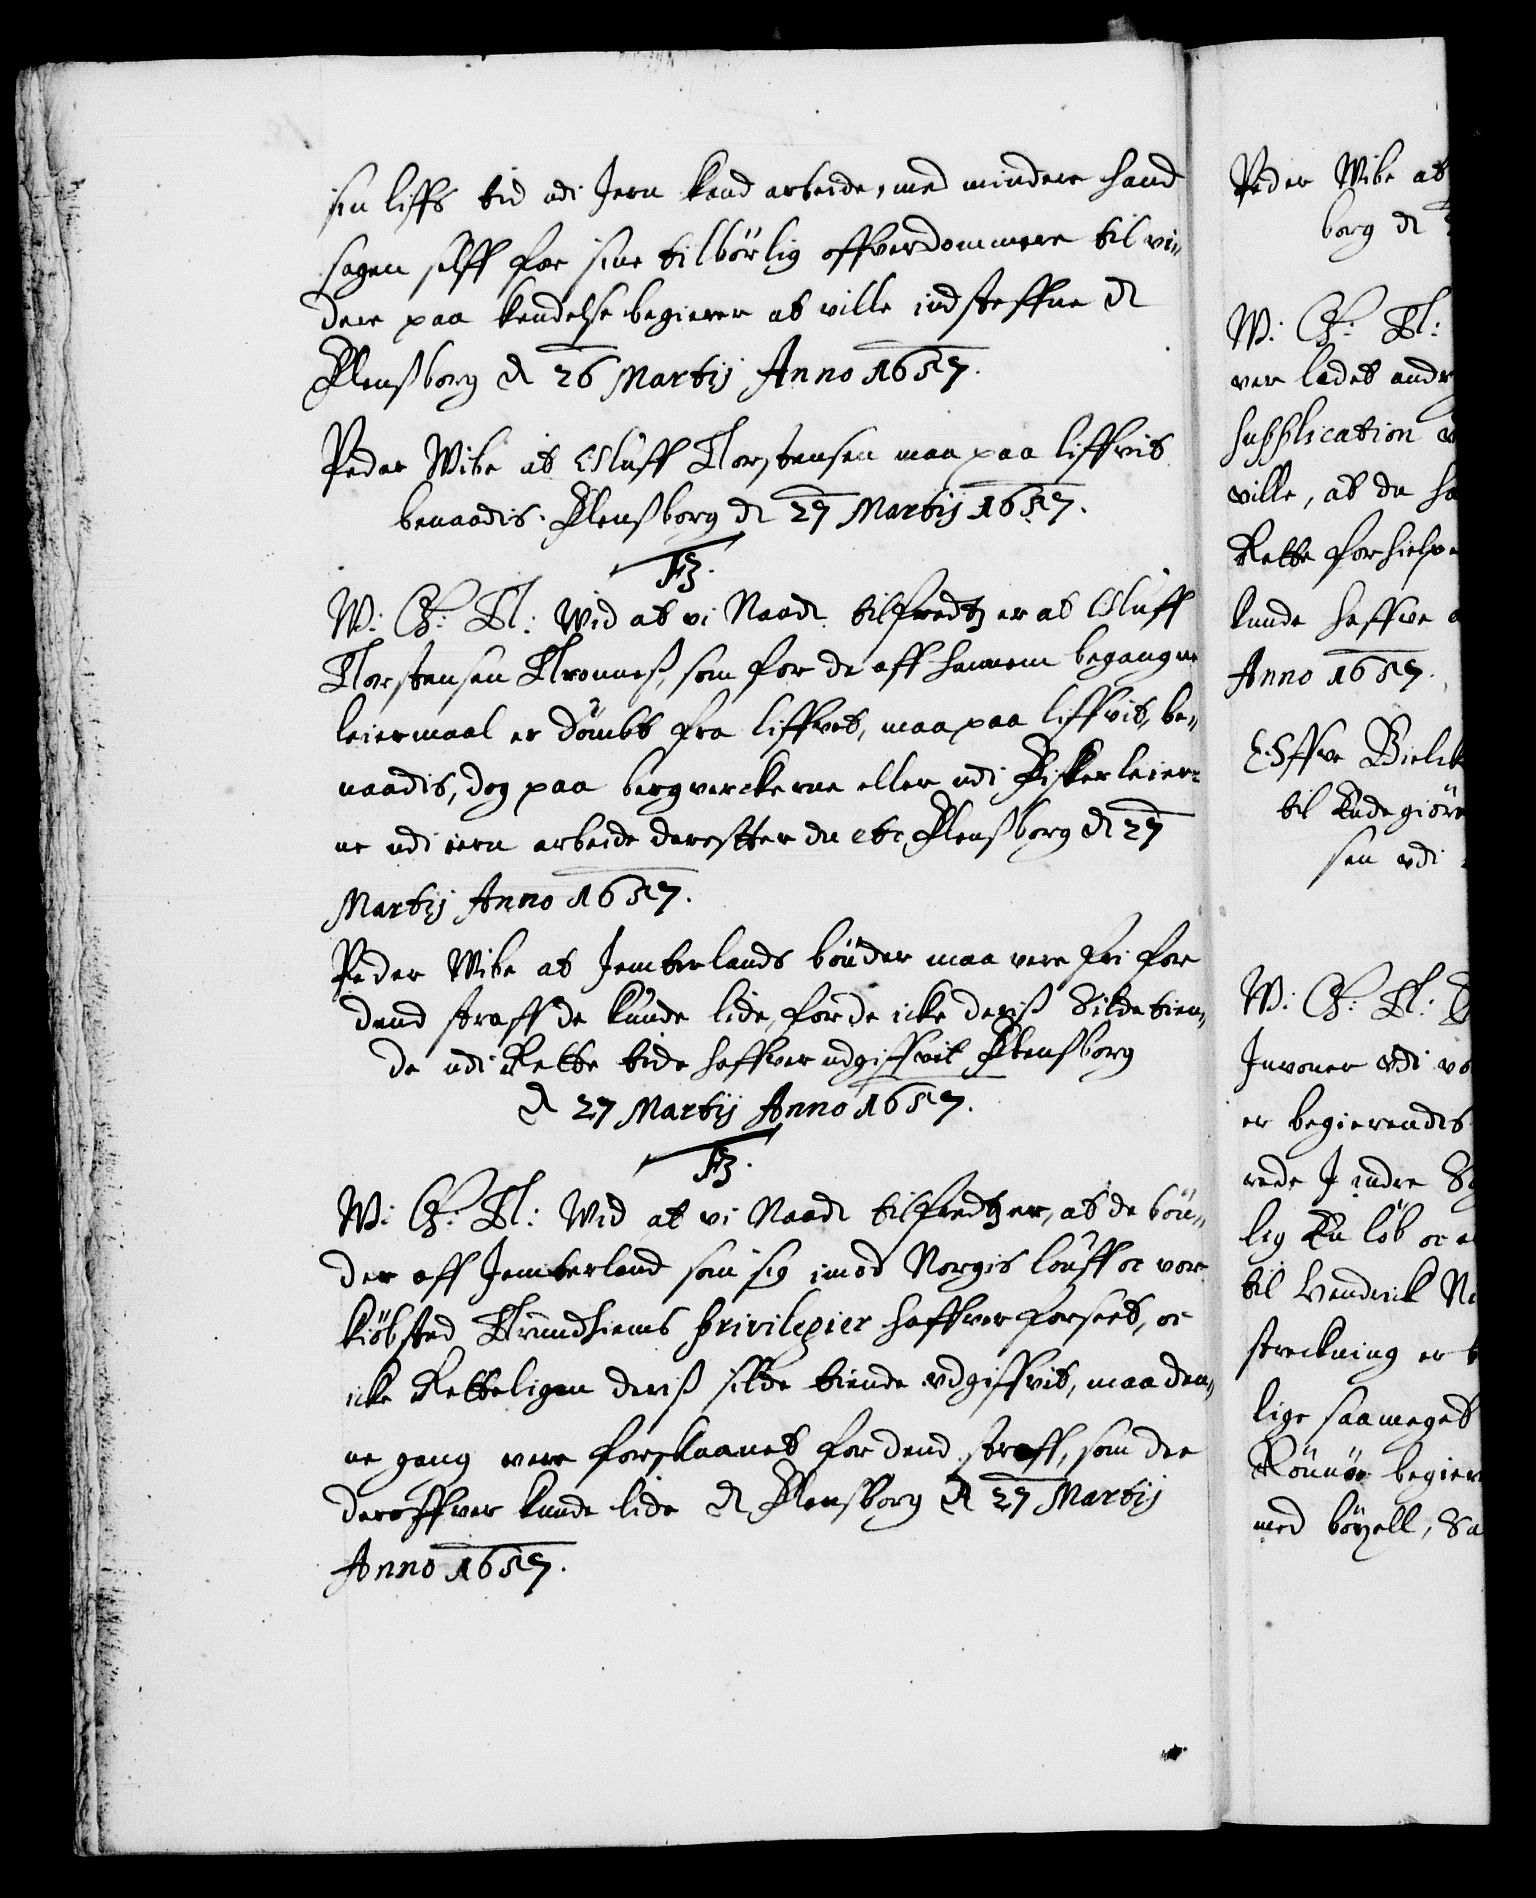 sin liffs tid udi Jern kand arbeide, med mindere hand
sagen selff for sine tilbörlig offverdommere til vi-
dere paa kendelse begierer at ville indsteffne etc
Flensborg d 26 Martij Anno 1657.
Peder Wibe at Oluff Torstensen maa paa liffvit
benaadis. Flensborg d 27 Martij 1657.
F3.
W: G: T: Wid at vi Naadt tilfredtz er at Oluff
Torstensen Tronnes, som for de aff hannem begangne
leiermaal er dömbt fra liffvet, maa paa liffvit, be-
naadis, dog paa bergverckerne eller udi Fiskerleier-
ne udi iern arbeide derefter du etc Flensborg d 27
Martij Anno 1657.
Peder Wibe at Jemterlands bönder maa vere fri for
dend straff de kunde lide, for de icke deriss Silde tien-
de udi Rette tide haffver udgiffvit Flensborg
d 27 Martij Anno 1657.
F3.
W: G: T: Wid at vi Naadt tilfredtz er, at de bön-
der aff Jemterland som sig imod Norgis louff oc vor
kiöbsted Trundhiems privilegier haffver forseet, oc
icke Retteligen deriss silde tiende udgiffvit, maa den-
ne gang vere forskaanet for dend straff, som de
deroffver kunde lide etc Flensborg d 27 Martij
Anno 1657.
Peder Wibe at
borg d
W: G: T:
ver ladet andr
supplication
ville, at du ha
Rette forhielpe
kunde haffve
Anno 1657.
Offve Bielck
til Rede giöre
sen udi
W: G: T:
Invoner udi vo
er begierendis
rede J indre
lig En löb oc
til Hendrick Ni
streckning er
lige saameget
Rönnöe begier
med böxell, Sa